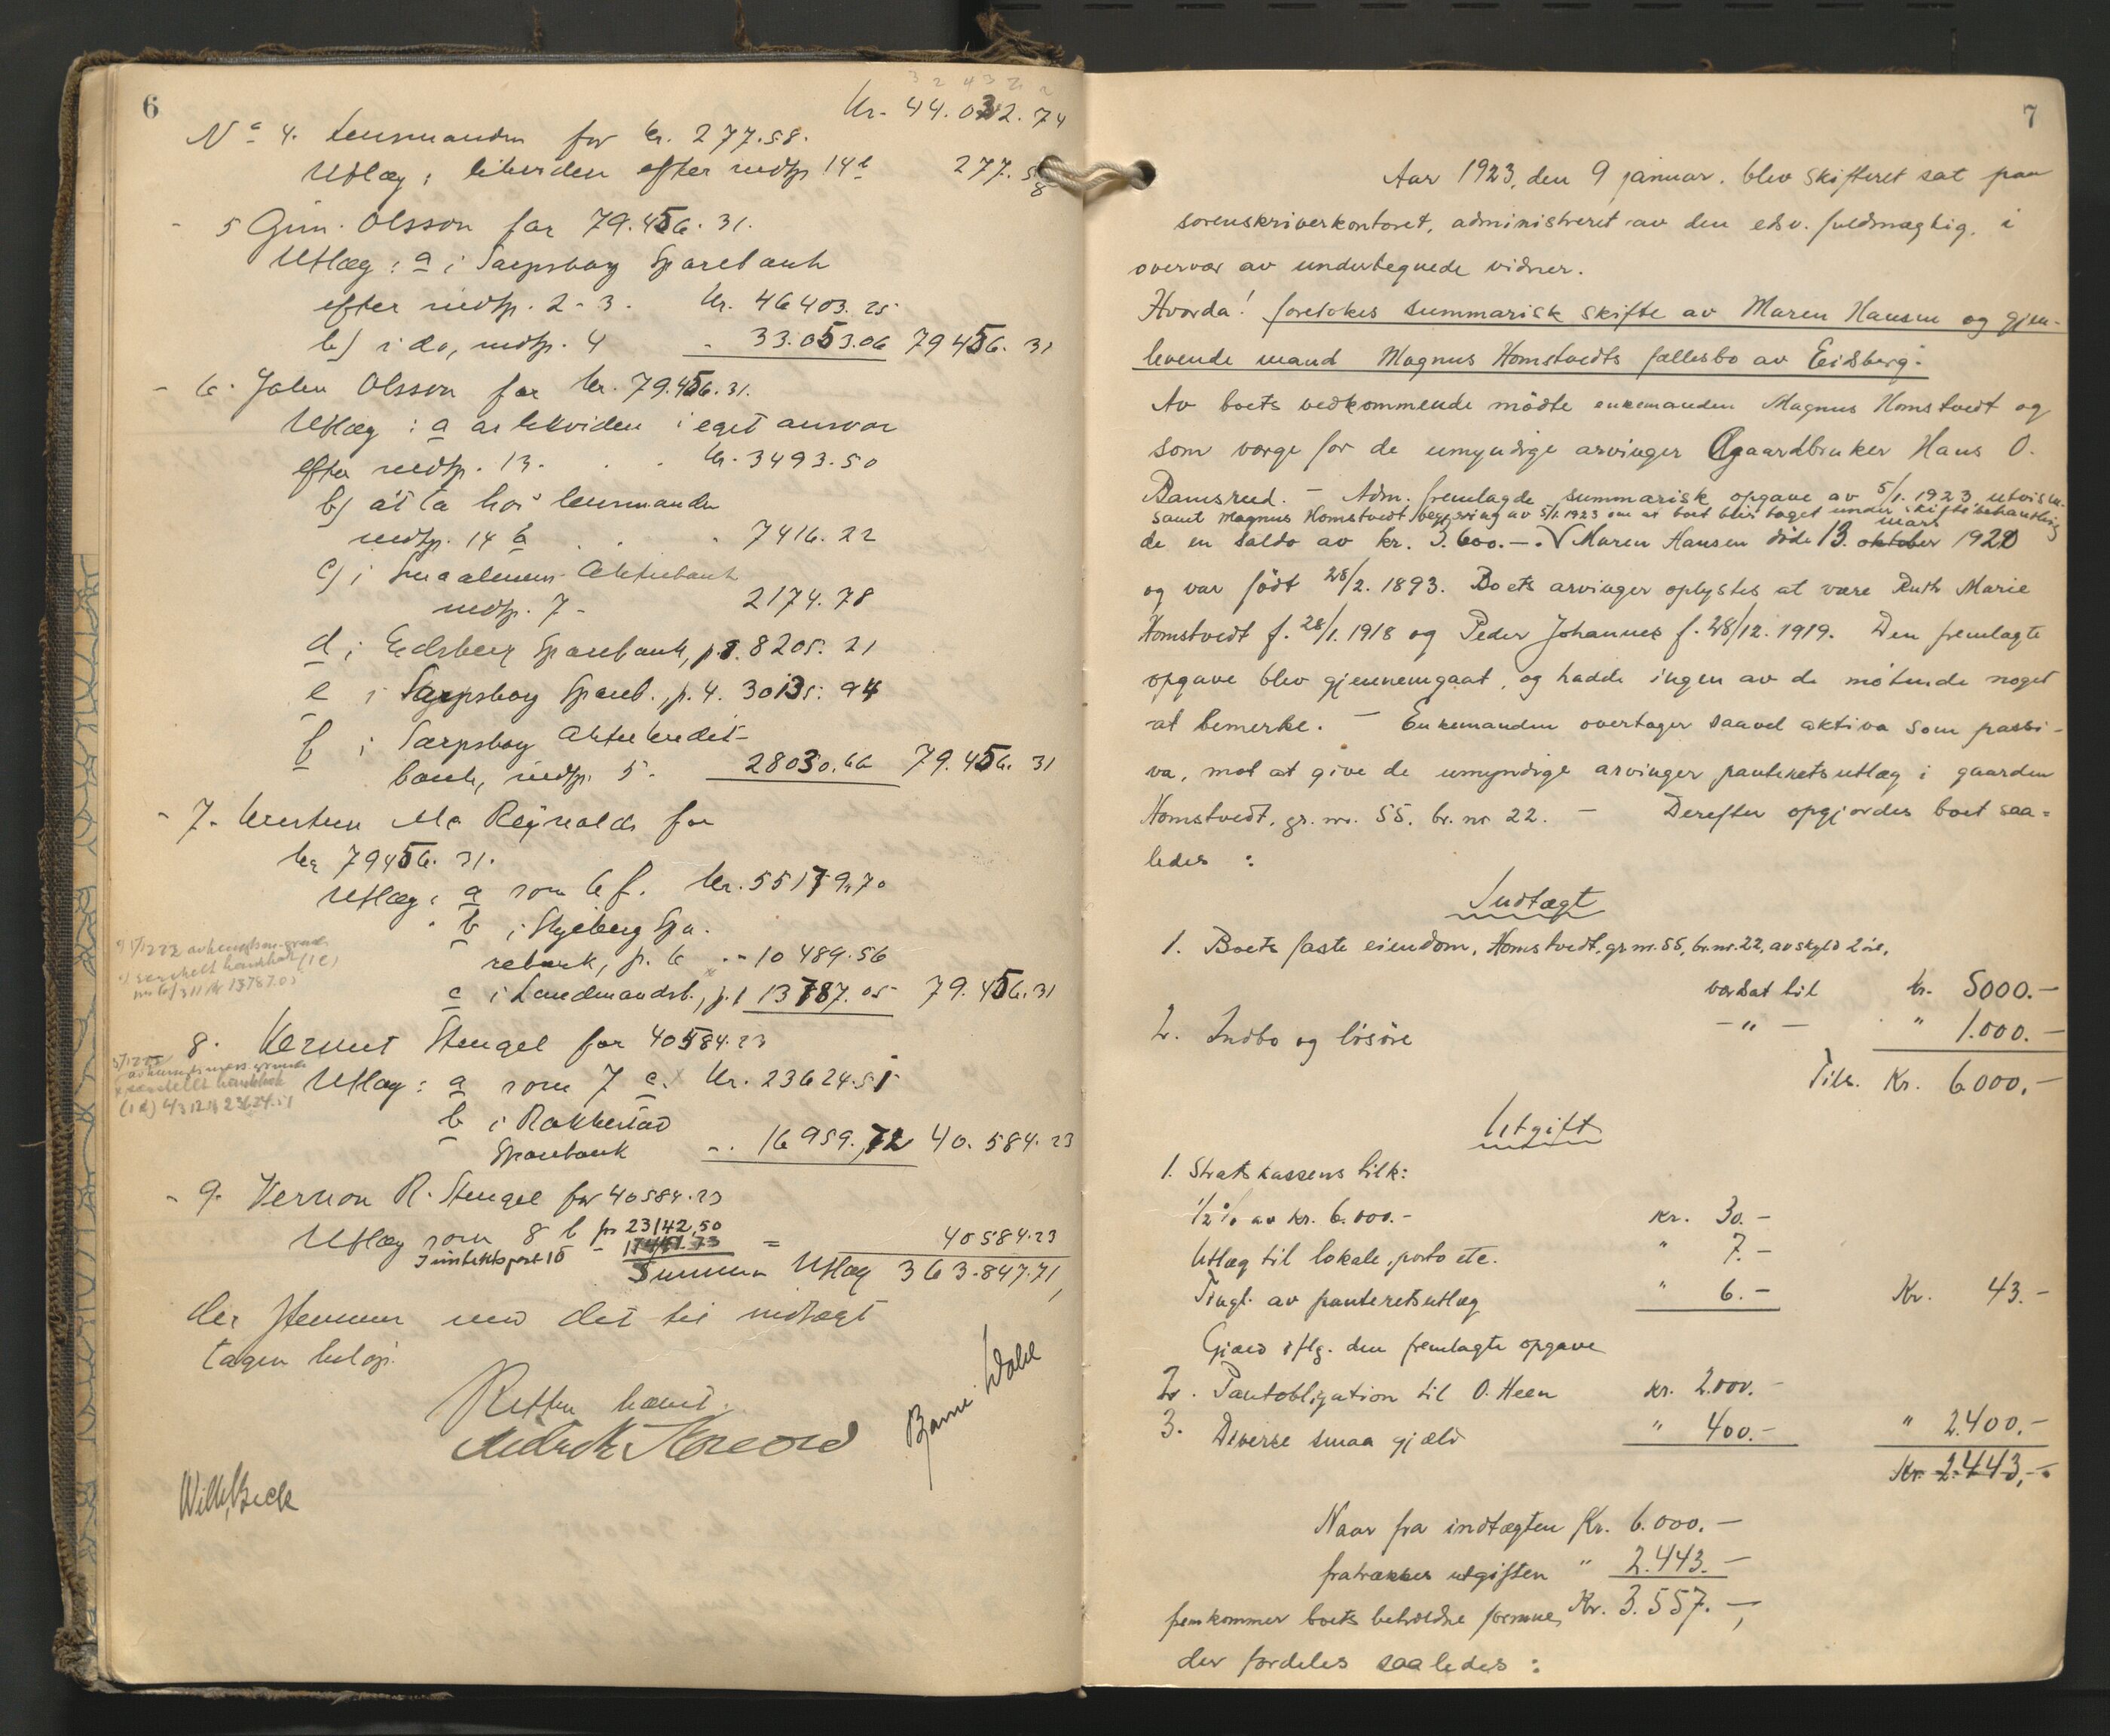 6
Kr. 44.032.74
No 4. Lensmanden for kr. 277.58.
Utlæg: likviden efter indtp 14b 277.58
- 5 Gun. Olsson for 79.456.31.
Utlæg: a i Sarpsborg Sparebank
efter indtp. 2-3. kr. 46403.25
b) i do, indtp. 4 - 33.053.06 79456.31
- 6. John Olsson for kr. 79.456.31.
Utlæg: a i eget ansvar
efter indtp. 13. . . kr. 3493.50
b) at ta hos lensmanden
indtp. 14 b . . 7416.22
c) i Smaalenenes Aktiebank
indtp. 7 - 2174.78
d i Eidsberg Sparebank, p. 8. 8205.21
e i Sarpsborg Spareb., p. 4. 30135.94
f i Sarpsborg Aktiekredit-
bank, indtp. 5. 28030.66 79.456.31
- 7. Mc Reynolds for
kr 79456.31.
Utlæg: a som 6 f. kr. 55179.70
b i Skjeberg Spa-
rebank, p. 6 - 10489.56
c i Landmandsb., p. 1 13787.05 79.456.31
8. Stengel for 40584.23
Utlæg: a som 7 c. kr. 23624.51
b i Rakkestad
Sparebank - 16959.72 40.584.23
- 9. Vernon R. Stengel for 40584.23
Utlæg som 8 b kr 23142,50
I indtektspost 10 - 17441.73 = 40584.23
Summa Utlæg 363.847.71,
der stemmer med det til indtægt
tagen beløp.
Retten hævet.
Bjarne Dahl
Wilh. Beck
7
Aar 1923, den 9 januar. blev skifteret sat paa
sorenskriverkontoret, administreret av den edsv. fuldmægtig, i
overvær av undertegnede vidner.
Hvorda! foretokes summarisk skifte av Maren Hansen og gjen-
levende mand Magnus Homstvedts fællesbo av Eidsberg.
Av boets vedkommende mödte enkemanden Magnus Homstvedt og
som verge for de umyndige arvinger Gaardbruker Hans O.
Ramsrud. - Adm. fremlagde summarisk opgave av 5/1. 1923, utvisen-
samt Magnus Homstvedt begjæring av 5/1 1923 om at boet blir taget under skiftebehandling
de en saldo av kr. 3.600.-. √ Maren Hansen döde 13. oktober mars 1920
og var födt 28/2. 1893. Boets arvinger oplystes at være Ruth Marie
Homstvedt f. 28/1. 1918 og Peder Johannes f. 28/12. 1919. Den fremlagte
opgave blev gjennemgaat, og hadde ingen av de mötende noget
at bemerke. - Enkemanden overtager saavel aktiva som passi-
va, mot at give de umyndige arvinger panteretsutlæg i gaarden
Homstvedt, gr. nr. 55, br. nr 22. - Derefter opgjordes boet saa-
ledes :
Indtægt
1. Boets faste eiendom, Homstvedt, gr nr. 55, br. nr. 22, av skyld 2 öre,
værdsat til kr. 5000.-
2. Indbo og lösöre -"- " 1.000.-
Tils. Kr. 6000.-
Utgift
1. Statskassens tilk:
1/2 % av kr. 6.000.- kr. 30.-
Utlæg til lokale, porto etc. " 7.-
Tingl. av panteretsutlæg " 6.- Kr. 43.-
Gjæld iflg. den fremlagte opgave
2. Pantobligation til O. Heen kr. 2.000.-
3. Diverse smaa gjæld " 400.- " 2.400.-
Kr. 2.443,-
Naar fra indtægten Kr. 6.000.-
fratrækkes utgiften " 2.443.-
fremkommer boets beholdne formue, Kr. 3.557.-,
der fordeles saaledes :